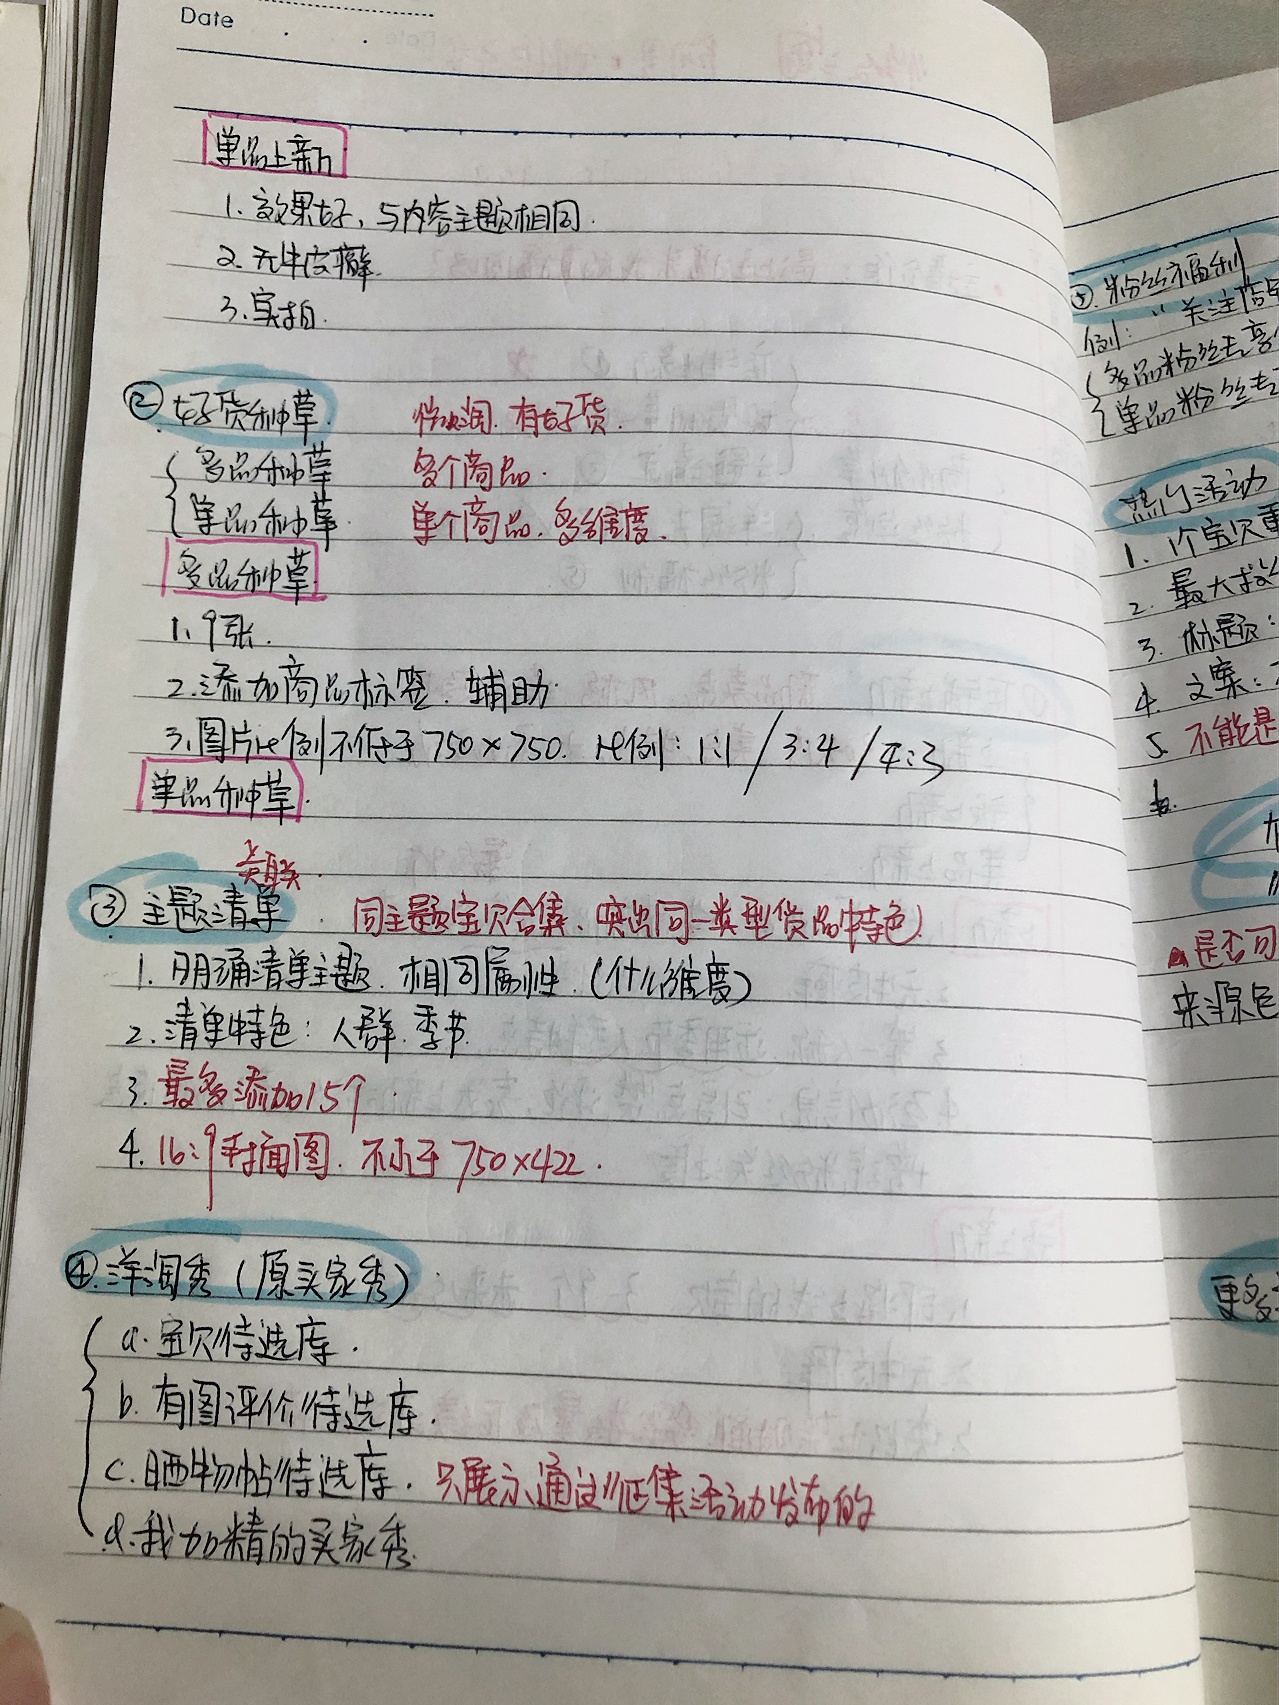 Date
单品上新
1. 效果好、与内容主题相同.
2. 无牛皮癣.
3. 实拍.
② 好货种草. 有好货.
多品种草 多个商品.
单品种草. 单个商品. 多维度.
多品种草.
1. 9张.
2. 添加商品标签. 辅助.
3. 图片比例不低于750×750. 比例: 1:1 / 3:4 / 4:3
单品种草.
关联.
③ 主题清单. 同主题宝贝合集、突出同一类型货品特色.
1. 明确清单主题. 相同属性. (什么维度)
2. 清单特色: 人群. 季节.
3. 最多添加15个.
4. 16:9封面图. 不小于750×422.
④. 洋淘秀 (原买家秀).
a. 宝贝待选库.
b. 有图评价待选库.
c. 晒物帖待选库. 只展示通过征集活动发布的
d. 我加精的买家秀.
⑤. 粉丝福利
例: "关注店
多品粉丝专享
单品粉丝专
热门活动
1. 1个宝贝
2. 最大
3. 标题:
4. 文案:
5. 不能是
6.
是否可
来源
更多